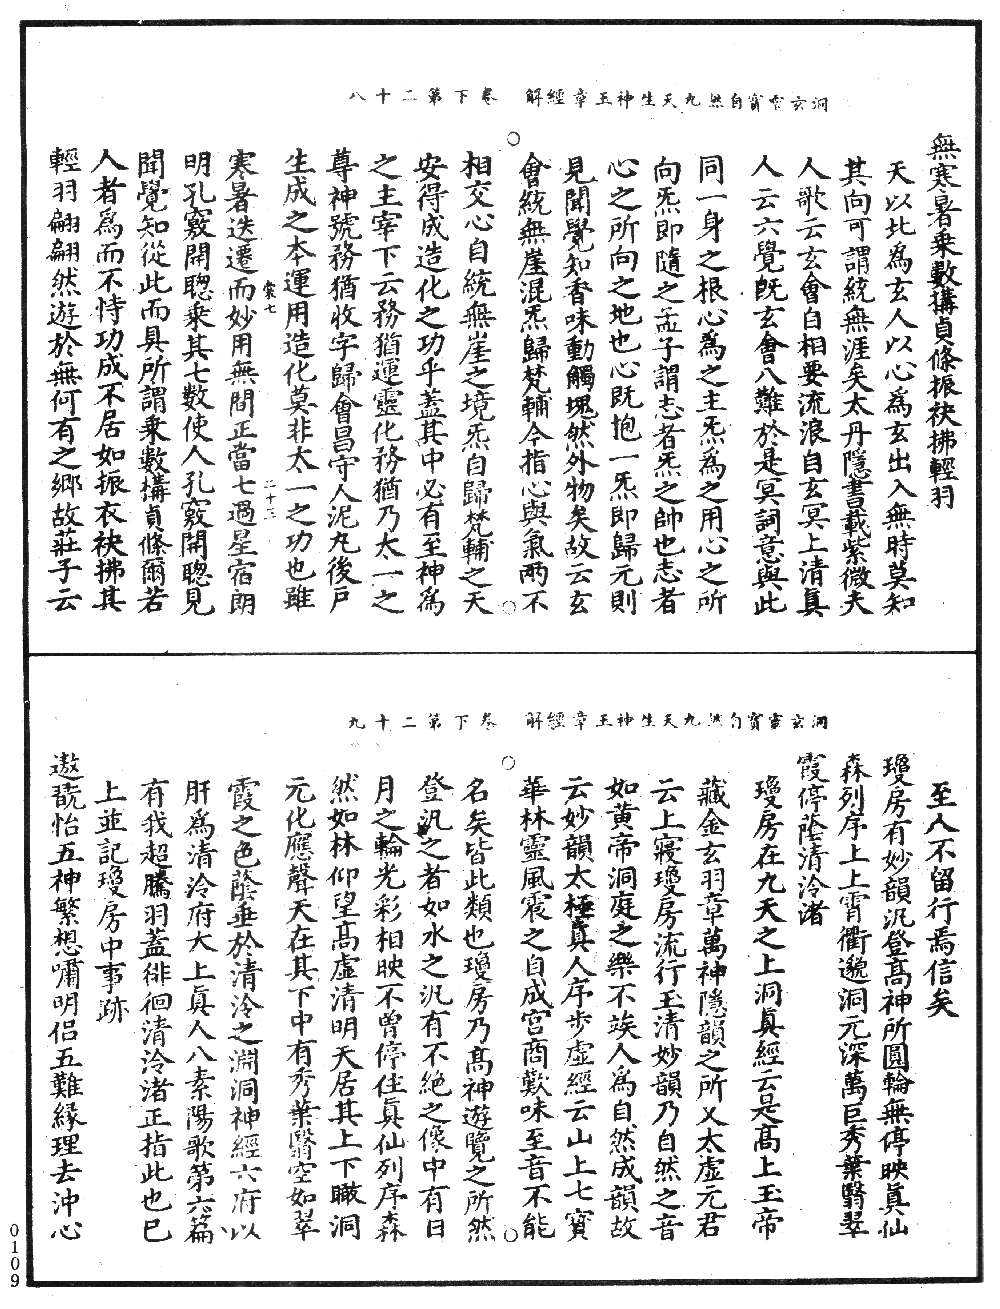 洞玄靈寶自然九天生神玉章經解　卷下第二十八
無寒暑乘數構貞條振袂拂輕羽
天以此為玄人以心為玄出入無時莫知
其向可謂統無涯矣太丹隱書載紫微夫
人歌云玄會自相要流浪自玄冥上清真
人云六覺旣玄會八難於是冥詞意與此
同一身之根心為之主炁為之用心之所
向炁即隨之孟子謂志者炁之帥也志者
心之所向之地也心既抱一炁即歸元則
見聞覺知香味動觸塊然外物矣故云玄
會統無崖混炁歸梵輔今指心與氣兩不
相交心自統無崖之境炁自歸梵輔之天
安得成造化之功乎蓋其中必有至神為
之主宰下云務猶運靈化務猶乃太一之
尊神號務猶收字歸會昌守人泥丸後戶
生成之本運用造化莫非太一之功也雖
裳七
二十三
寒暑迭遷而妙用無間正當七過星宿朗
明孔竅開聰乘其七數使人孔竅開聰見
聞覺知從此而具所謂乘數構貞條爾若
人者為而不恃功成不居如振衣袂拂其
輕羽翩翩然遊於無何有之鄉故莊子云
洞玄靈寶自然九天生神玉章經解　卷下第二十九
至人不留行焉信矣
瓊房有妙韻汎登高神所圓輪無停映真仙
森列序上上霄衢邈洞元深萬巨秀葉翳翠
霞停蔭清泠渚
瓊房在九天之上洞真經云是高上玉帝
藏金玄羽章萬神隱韻之所又太虛元君
云上寢瓊房流行玉清妙韻乃自然之音
如黃帝洞庭之樂不竢人為自然成韻故
云妙韻太極真人序步虛經云山上七寶
華林靈風震之自成宮商歎味至音不能
名矣皆此類也瓊房乃高神遊覽之所然
登汎之者如水之汎有不絕之像中有日
月之輪光彩相映不曾停住真仙列序森
然如林仰望高虛清明天居其上下瞰洞
元化應聲天在其下中有秀葉翳空如翠
霞之色蔭垂於清泠之淵洞神經六府以
肝為清泠府大上真人八素陽歌第六篇
有我超騰羽蓋徘徊清泠渚正指此也巳
上並記瓊房中事跡
遨翫怡五神繁想嘯明侶五難緣理去沖心
0109